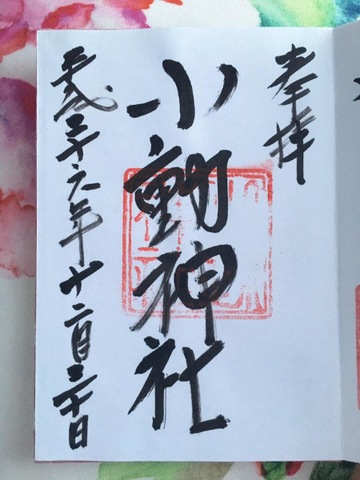 奉拝
小動神社
平成二十六年十二月三十日